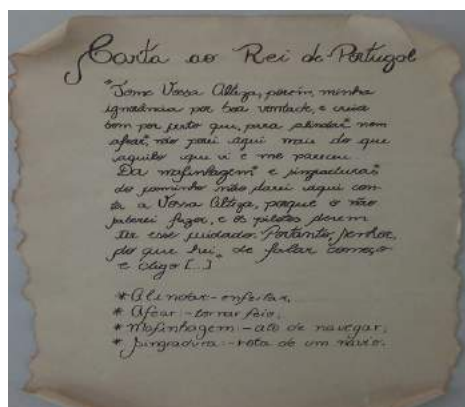 Carta ao Rei de Portugal
"Tome Vossa Alteza, porém, minha
ignorância por boa vontade, e creia
bem por certo que, para alindar* nem
afear*, não porei aqui mais do que
aquilo que vi e me pareceu.
Da mafinhagem* e singraduras*
do caminho não darei aqui con-
ta a Vossa Alteza, porque o não
saberei fazer, e os pilotos devem
ter esse cuidado. Portanto, Senhor,
do que hei de falar começo
e digo [...]
*Alindar - enfeitar.
* Afear - tornar feio.
* Mafinhagem - ato de navegar.
* Singradura - rota de um navio.